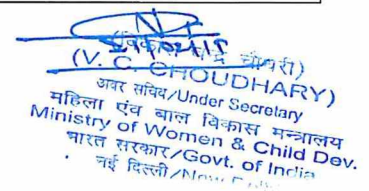 (V. C. CHOUDHARY)
अवर सचिव/Under Secretary
महिला एंव बाल विकास मन्त्रालय
Ministry of Women & Child Dev.
भारत सरकार/Govt. of India
नई दिल्ली/New